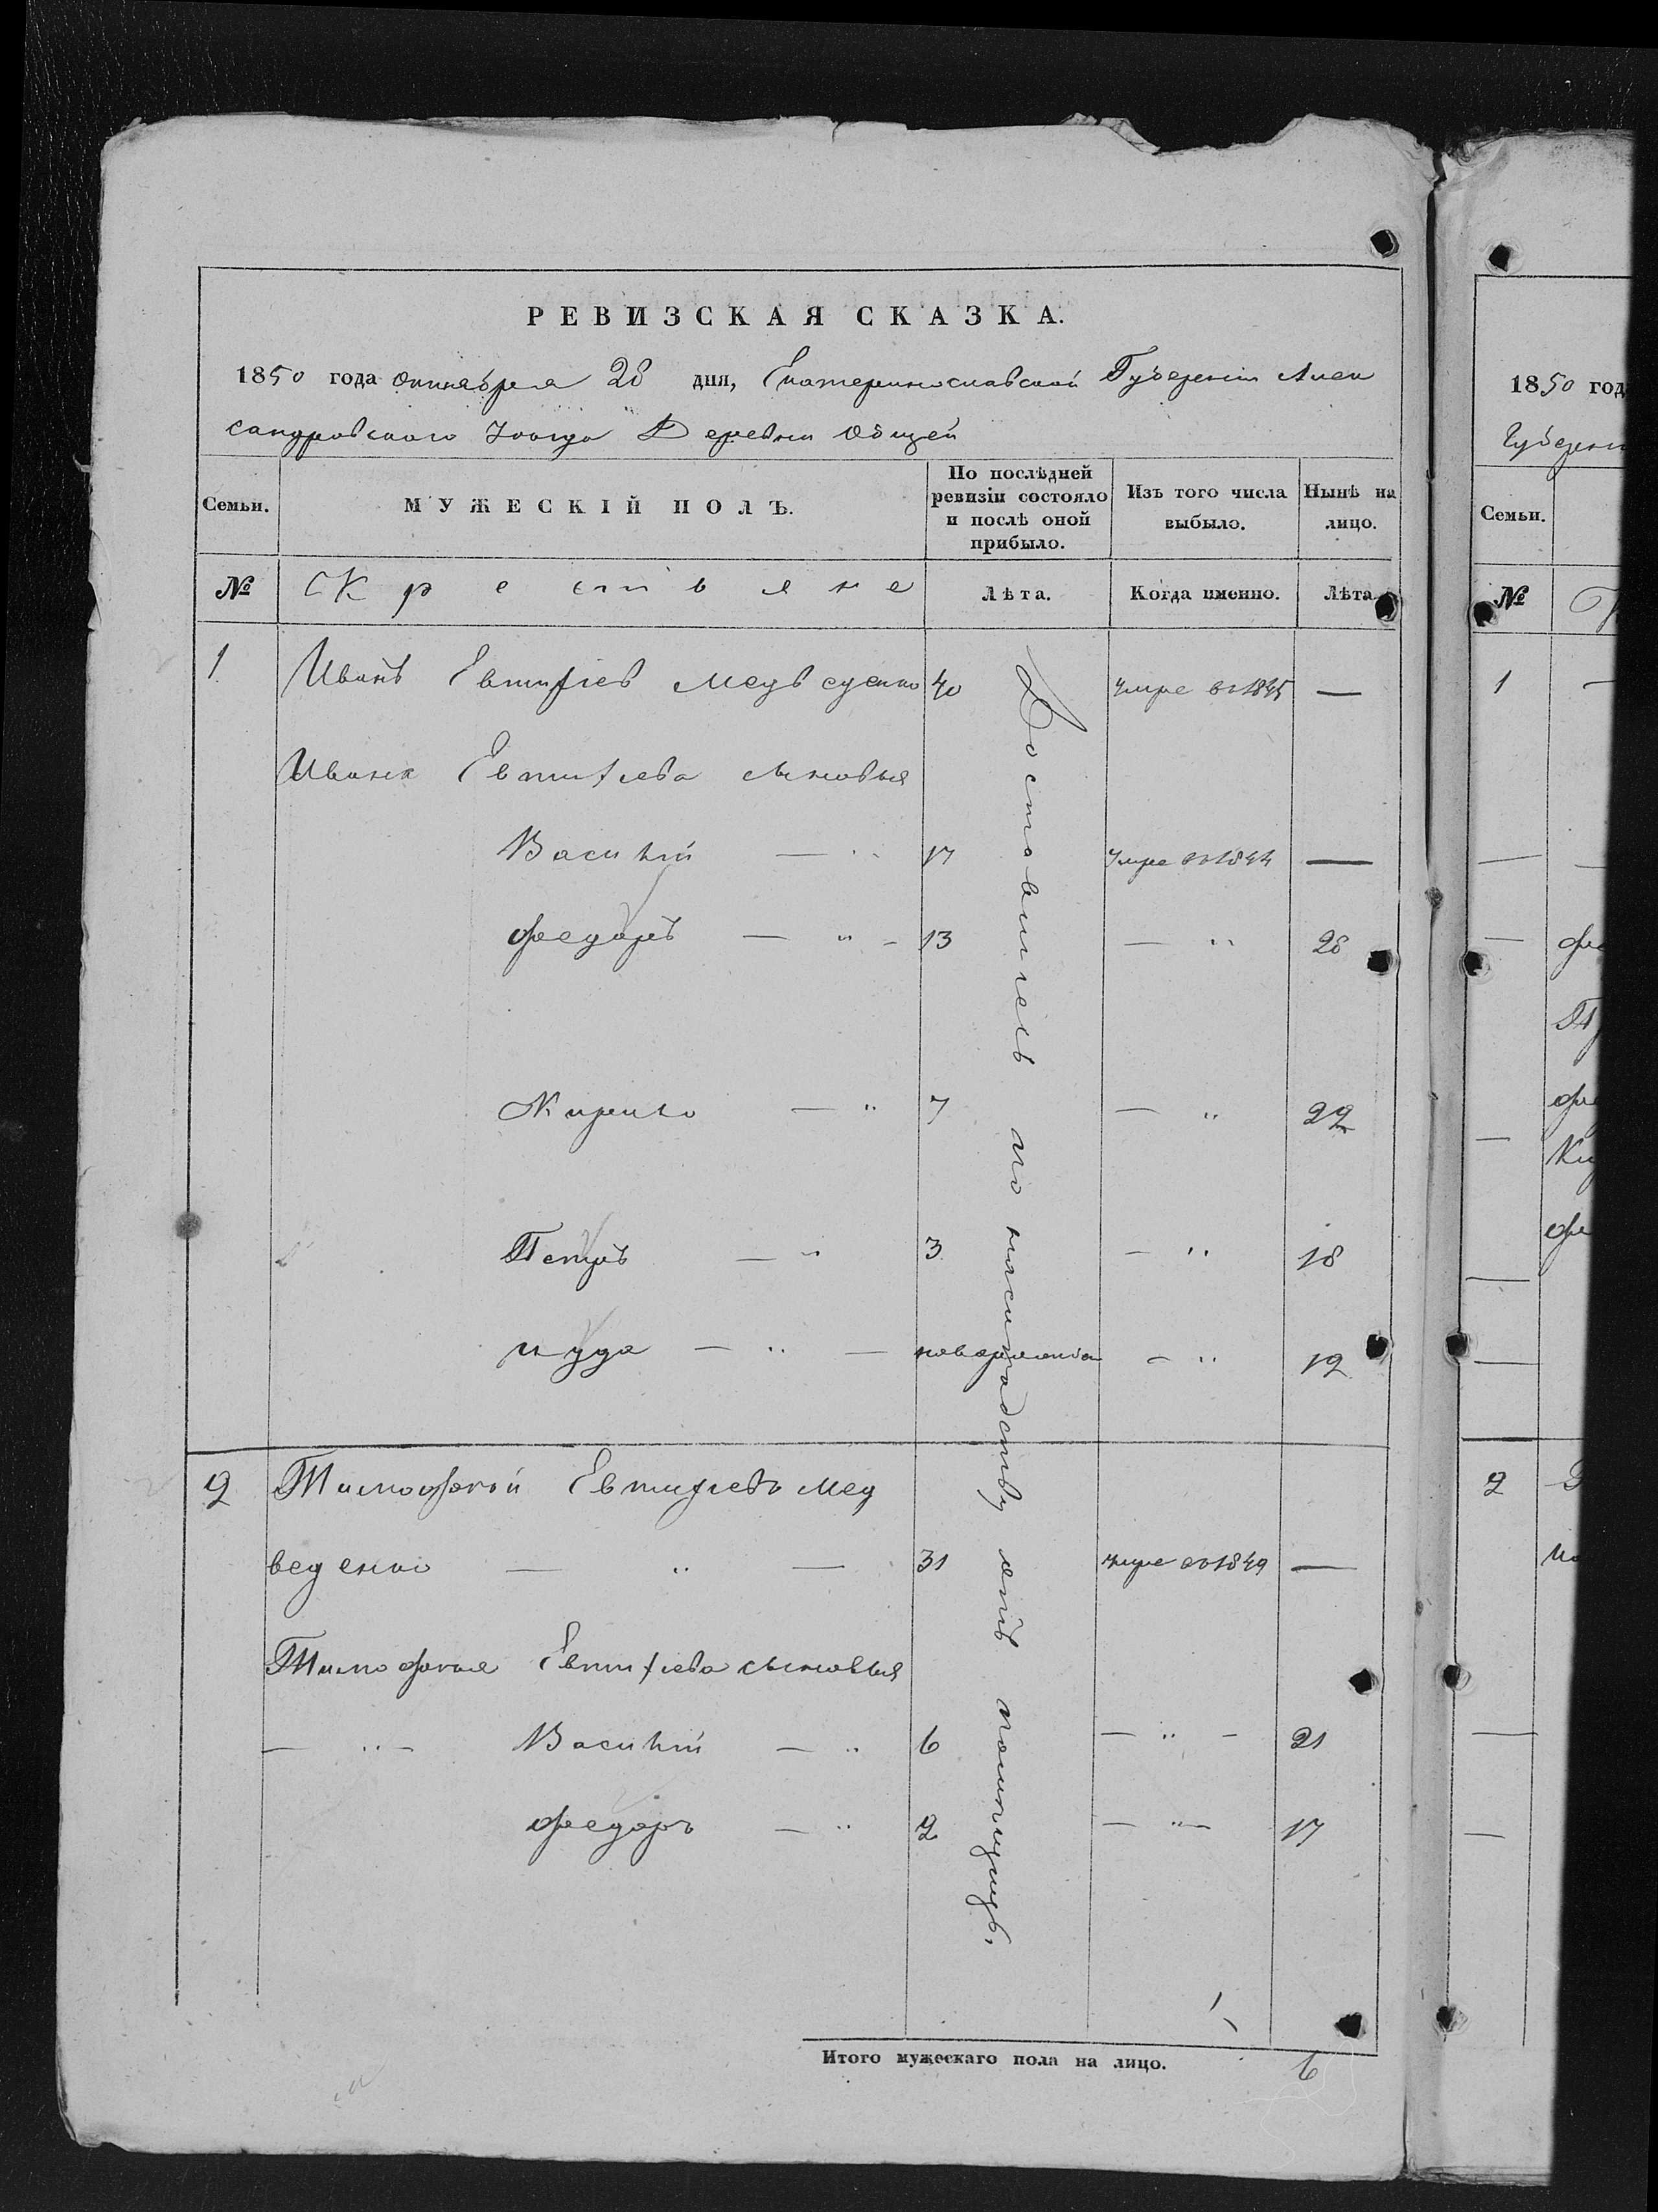 РЕВИЗСКАЯ СКАЗКА.
1850 года октября 28 дня, Екатеринославской Губернии Алек
сандровского Уезда Деревни Общей
Семьи. МУЖЕСКІЙ ПОЛЪ. По послѣдней ревизіи состояло и послѣ оной прибыло. Изъ того числа выбыло. Нынѣ на лицо.
№ Крестьяне Лѣта. Когда именно. Лѣта.
1 Иванъ Евтифіев Медведенко 40 умре въ 1845 —
Ивана Евтифіева сыновья
Василій — " 17 умре въ 1844 —
Федоръ — " - 13 — " 28
Кирило — " 7 — " 22
Петръ — " 3 — " 18
Иуда — " — новорожден — " 12
2 Тимофей Евтифіевъ Мед
веденко — " — 31 умре въ 1849 —
Тимофея Евтифіева сыновья
— " — Василій — " 6 — " — 21
Федоръ — " 2 — " — 17
Достались по наследству отъ помещицъ.
Итого мужескаго пола на лицо. 6
1850 год
Губерни
Семьи.
№
1
2